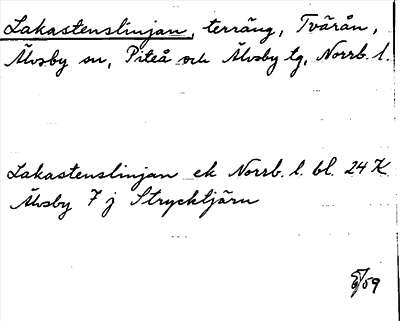 Lakastenslinjan, terräng, Tvärån,
Älvsby sn, Piteå och Älvsby tg, Norrb. l.
Lakastenslinjan ek Norrb. l. bl. 24 K
Älvsby 7 j Strycktjärn
6/59